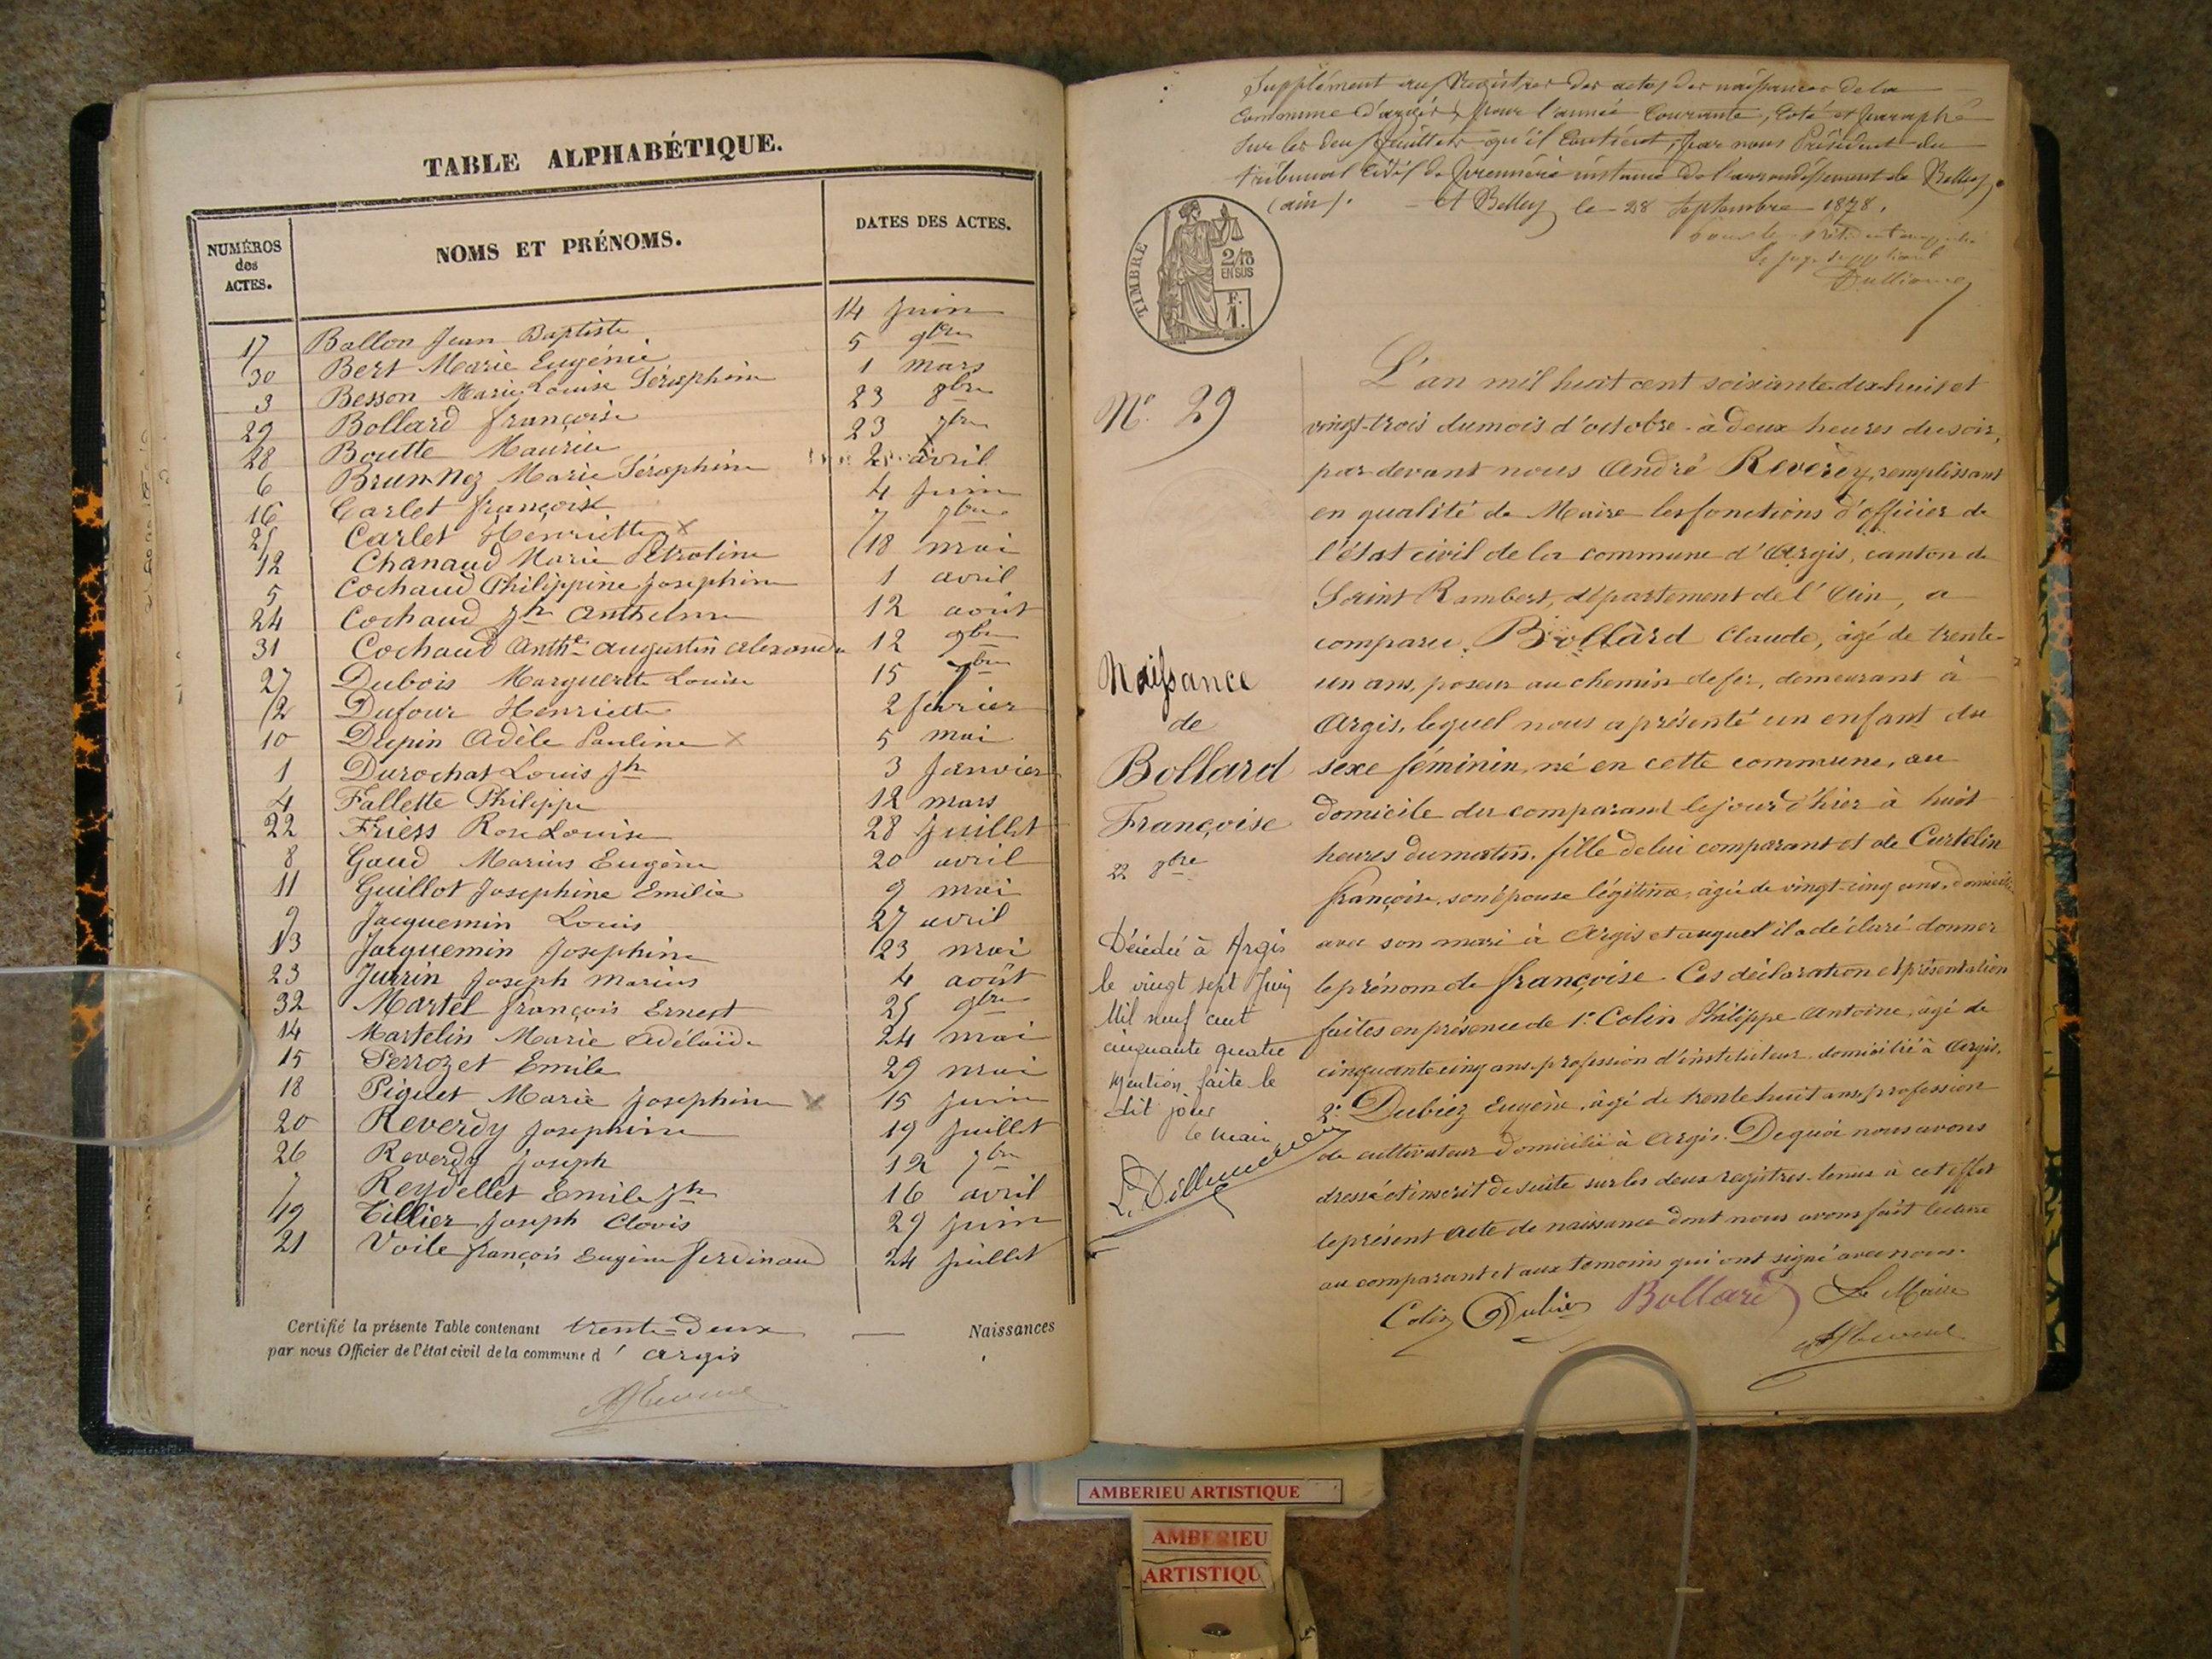 TABLE ALPHABÉTIQUE.
NUMÉROS des ACTES.
NOMS ET PRÉNOMS.
DATES DES ACTES.
17 Ballon Jean Baptiste 14 Juin
30 Bert Marie Eugénie 5 9bre
3 Besson Marie Louise Séraphine 1 mars
29 Bollard françoise 23 8bre
28 Boutte Maurice 23 7bre
6 Brun-Nez Marie Séraphine 2 avril
16 Carlet françoise 4 Juin
25 Carlet Henriette x 7 7bre
12 Chanaud Marie Pétroline 18 mai
5 Cochaud Philippine Josephine 1 avril
24 Cochaud Jh Anthelme 12 août
31 Cochaud Anthe Augustin Alexandre 12 9bre
27 Dubois Marguerite Louise 15 7bre
2 Dufour Henriette 2 février
10 Dupin Adèle Pauline x 5 mai
1 Durochat Louis Jh 3 Janvier
4 Fallette Philippe 12 mars
22 Friess Rose Louise 28 Juillet
8 Gaud Marius Eugène 20 avril
11 Guillot Josephine Emilie 9 mai
9 Jacquemin Louis 27 avril
13 Jacquemin Josephine 23 mai
23 Juvrin Joseph Marius 4 août
32 Martel françois Ernest 25 9bre
14 Martelin Marie Adélaïde 24 mai
15 Perrozet Emile 29 mai
18 Piquet Marie Josephine x 15 Juin
20 Reverdy Josephine 19 Juillet
26 Reverdy Joseph 12 7bre
7 Reydellet Emile Jh 16 avril
19 Tillier Joseph Clovis 29 Juin
21 Voile françois Eugène ferdinand 24 Juillet
Certifié la présente Table contenant trente-deux — Naissances
par nous Officier de l'état civil de la commune d' Argis
Supplément au Registres des actes des naissances de la
Commune d'argis, pour l'année Courante, Coté et paraphé
Sur les deux feuillets qu'il Contient, par nous Président du
tribunal Civil de première instance de l'arrondissement de Belley,
(ain). — A Belley le 28 Septembre 1878.
Le juge suppléant
TIMBRE
2/10
EN SUS
F.
1.
No. 29
Naissance
de
Bollard
Françoise
22 8bre
Décédée à Argis
le vingt sept Juin
Mil neuf cent
cinquante quatre
Mention faite le
dit jour
Le Maire
L'an mil huit cent soixante-dix-huit et
vingt-trois du mois d'octobre à deux heures du soir,
par devant nous André Reverdy, remplissant
en qualité de Maire les fonctions d'officier de
l'état civil de la commune d'Argis, canton de
Saint Rambert, département de l'Ain, a
comparu Bollard Claude, âgé de trente-
un ans, poseur au chemin de fer, demeurant à
Argis, lequel nous a présenté un enfant du
sexe féminin, né en cette commune, au
domicile du comparant le jour d'hier à huit
heures du matin, fille de lui comparant et de Curtelin
françoise, son épouse légitime, âgée de vingt-cinq ans, domiciliée
avec son mari à Argis et auquel il a déclaré donner
le prénom de françoise. Ces déclaration et présentation
faites en présence de 1º Colin Philippe Antoine, âgé de
cinquante cinq ans, profession d'instituteur, domicilié à Argis,
2º Dubiez Eugène, âgé de trente huit ans, profession
de cultivateur domicilié à Argis. De quoi nous avons
dressé et inscrit de suite sur les deux registres tenus à cet effet
le présent acte de naissance dont nous avons fait lecture
au comparant et aux témoins qui ont signé avec nous.
Colin Dubiez Bollard Le Maire
AMBERIEU ARTISTIQUE
AMBERIEU
ARTISTIQU